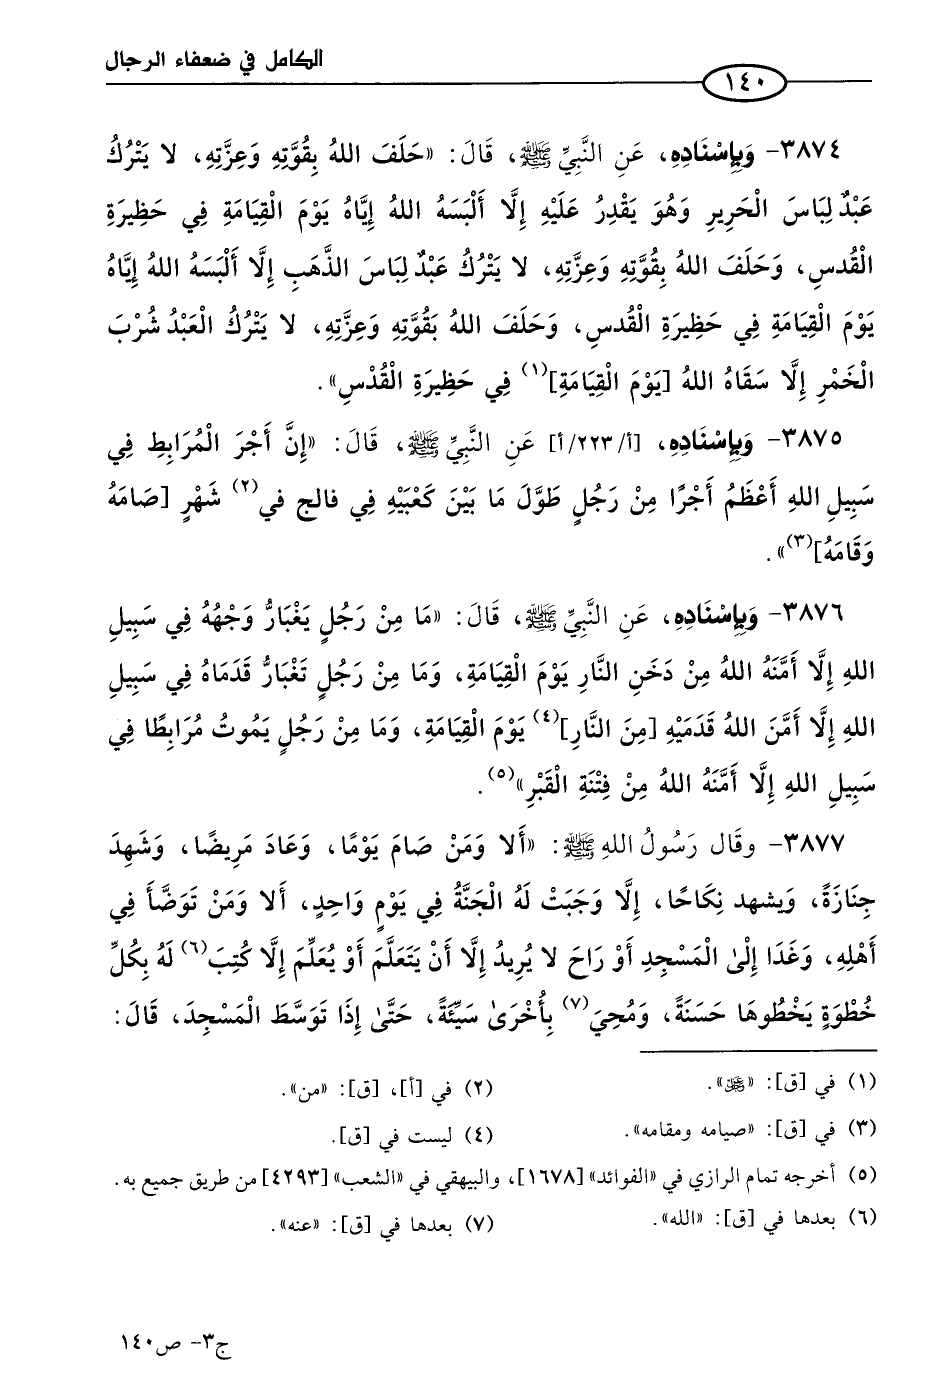 الكامل في ضعفاء الرجال
١٤٠
٣٨٧٤- وَبِإِسْنَادِهِ، عَنِ النَّبِيِّ ﷺ، قَالَ: «حَلَفَ اللهُ بِقُوَّتِهِ وَعِزَّتِهِ، لا يَتْرُكُ
عَبْدٌ لِبَاسَ الْحَرِيرِ وَهُوَ يَقْدِرُ عَلَيْهِ إِلَّا أَلْبَسَهُ اللهُ إِيَّاهُ يَوْمَ الْقِيَامَةِ فِي حَظِيرَةِ
الْقُدسِ، وَحَلَفَ اللهُ بِقُوَّتِهِ وَعِزَّتِهِ، لا يَتْرُكُ عَبْدٌ لِبَاسَ الذَّهَبِ إِلَّا أَلْبَسَهُ اللهُ إِيَّاهُ
يَوْمَ الْقِيَامَةِ فِي حَظِيرَةِ الْقُدسِ، وَحَلَفَ اللهُ بَقُوَّتِهِ وَعِزَّتِهِ، لا يَتْرُكُ الْعَبْدُ شُرْبَ
الْخَمْرِ إِلَّا سَقَاهُ اللهُ [يَوْمَ الْقِيَامَةِ](١) فِي حَظِيرَةِ الْقُدْسِ».
٣٨٧٥- وَبِإِسْنَادِهِ، [أ/٢٢٣/أ] عَنِ النَّبِيِّ ﷺ، قَالَ: «إِنَّ أَجْرَ الْمُرَابِطِ فِي
سَبِيلِ اللهِ أَعْظَمُ أَجْرًا مِنْ رَجُلٍ طَوَّلَ مَا بَيْنَ كَعْبَيْهِ فِي فالج في(٢) شَهْرٍ [صَامَهُ
وَقَامَهُ](٣)».
٣٨٧٦- وَبِإِسْنَادِهِ، عَنِ النَّبِيِّ ﷺ، قَالَ: «مَا مِنْ رَجُلٍ يَغْبَارُّ وَجْهُهُ فِي سَبِيلِ
اللهِ إِلَّا أَمَّنَهُ اللهُ مِنْ دَخَنِ النَّارِ يَوْمَ الْقِيَامَةِ، وَمَا مِنْ رَجُلٍ تَغْبَارُّ قَدَمَاهُ فِي سَبِيلِ
اللهِ إِلَّا أَمَّنَ اللهُ قَدَمَيْهِ [مِنَ النَّارِ](٤) يَوْمَ الْقِيَامَةِ، وَمَا مِنْ رَجُلٍ يَمُوتُ مُرَابِطًا فِي
سَبِيلِ اللهِ إِلَّا أَمَّنَهُ اللهُ مِنْ فِتْنَةِ الْقَبْرِ»(٥).
٣٨٧٧- وقَال رَسُولُ اللهِ ﷺ: «أَلا وَمَنْ صَامَ يَوْمًا، وَعَادَ مَرِيضًا، وَشَهِدَ
جِنَازَةً، وَيشهد نِكَاحًا، إِلَّا وَجَبَتْ لَهُ الْجَنَّةُ فِي يَوْمٍ وَاحِدٍ، أَلا وَمَنْ تَوَضَّأَ فِي
أَهْلِهِ، وَغَدَا إِلَىٰ الْمَسْجِدِ أَوْ رَاحَ لا يُرِيدُ إِلَّا أَنْ يَتَعَلَّمَ أَوْ يُعَلِّمَ إِلَّا كُتِبَ(٦) لَهُ بِكُلِّ
خُطْوَةٍ يَخْطُوهَا حَسَنَةً، وَمُحِيَ(٧) بِأُخْرَىٰ سَيِّئَةً، حَتَّىٰ إِذَا تَوَسَّطَ الْمَسْجِدَ، قَالَ:
(١) في [ق]: «ﷺ».
(٢) في [أ]، [ق]: «من».
(٣) في [ق]: «صيامه ومقامه».
(٤) ليست في [ق].
(٥) أخرجه تمام الرازي في «الفوائد» [١٦٧٨]، والبيهقي في «الشعب» [٤٢٩٣] من طريق جميع به.
(٦) بعدها في [ق]: «الله».
(٧) بعدها في [ق]: «عنه».
ج٣- ص١٤٠